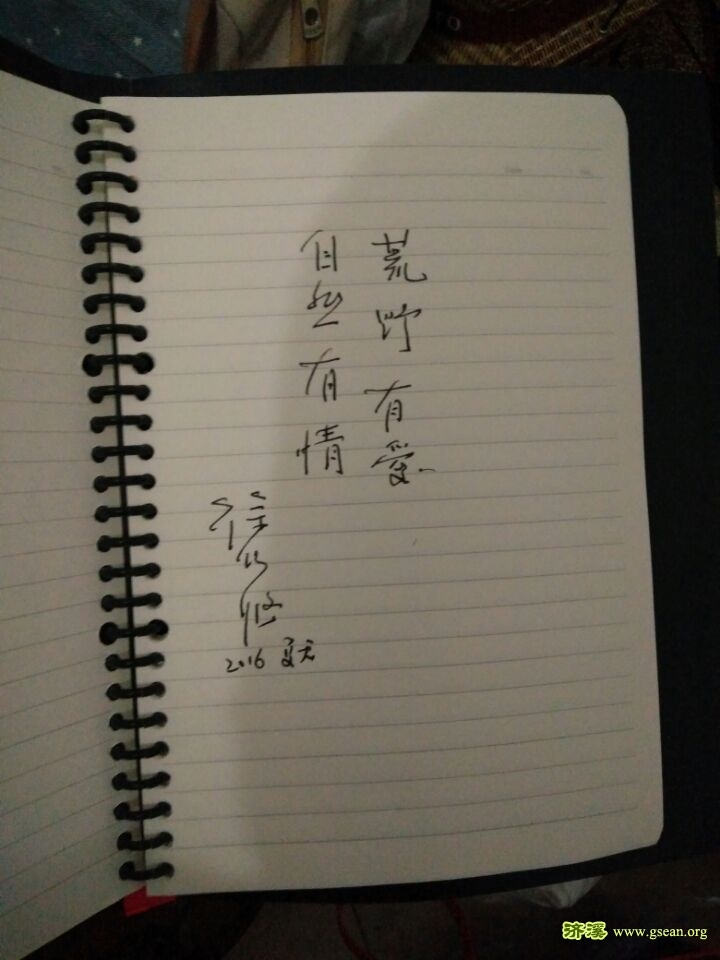 荒野有愛
自然有情
徐仁修
2016 夏天
济溪 www.gsean.org